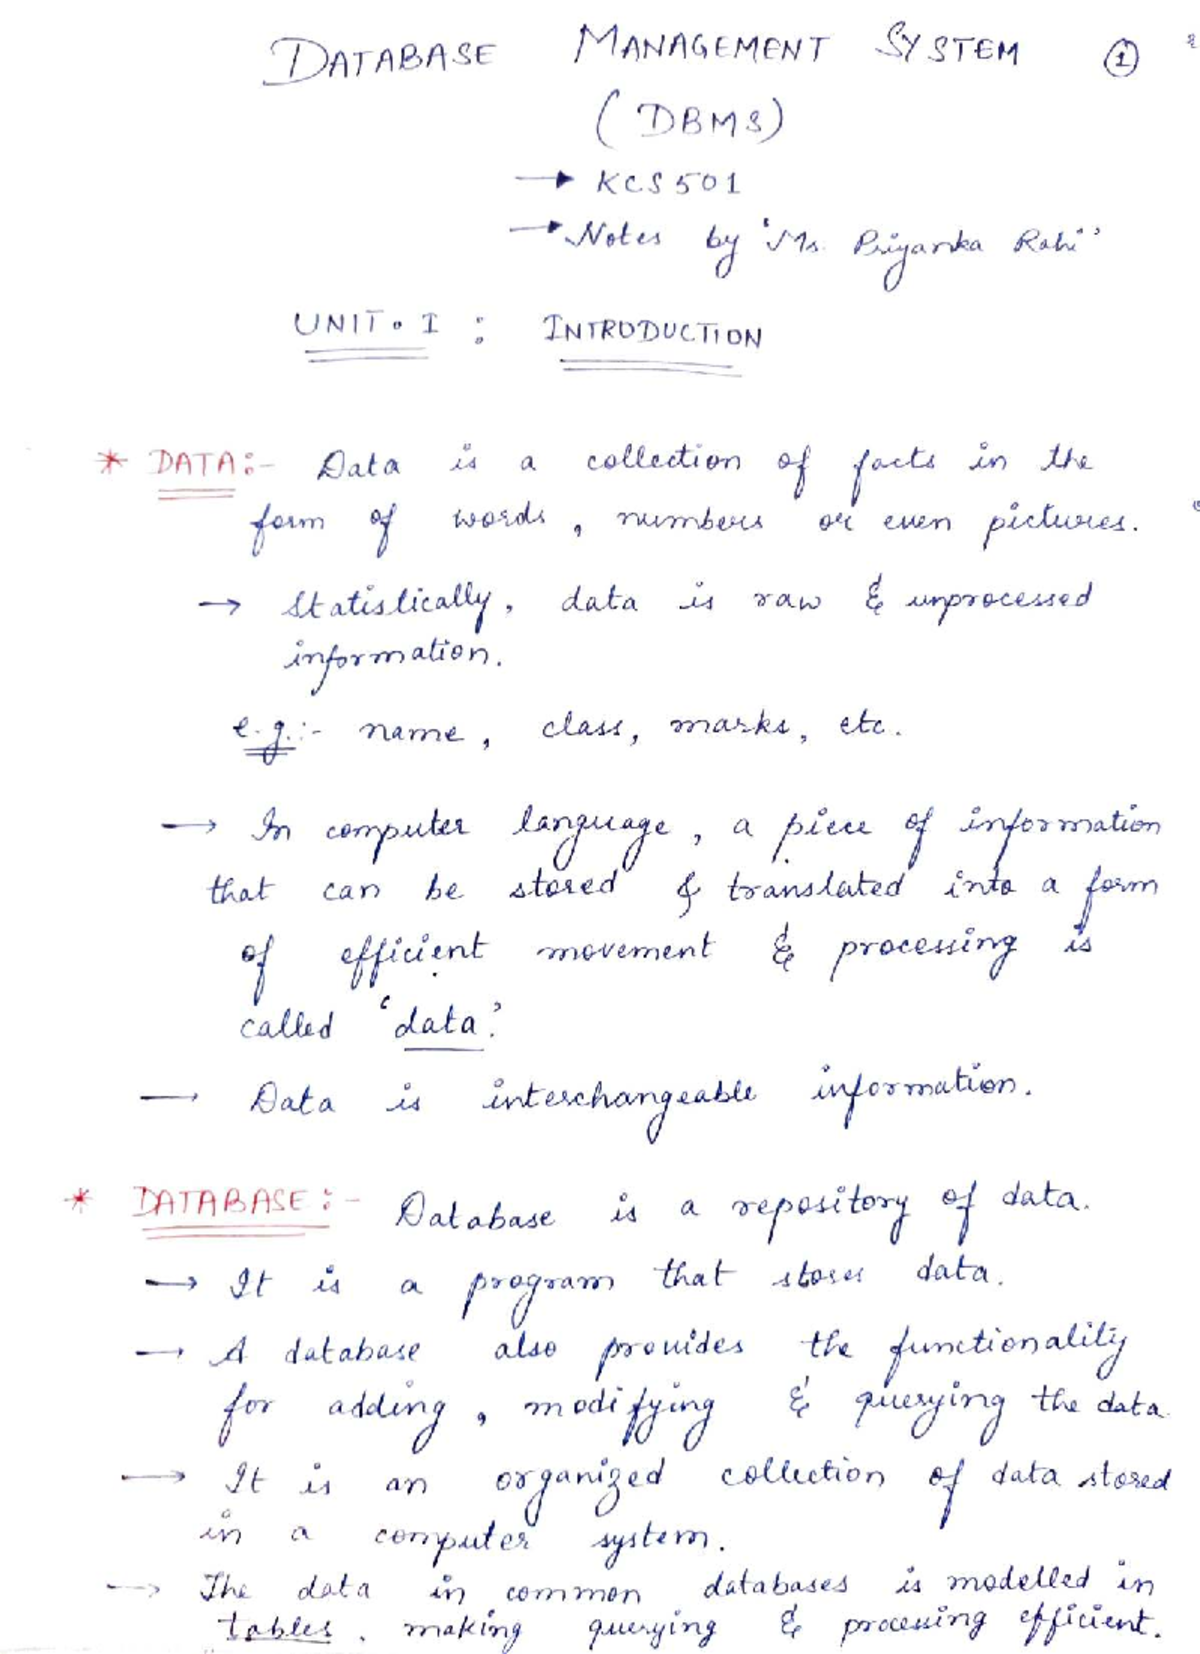 DATABASE MANAGEMENT SYSTEM ①
(DBMS)
→ KCS501
→ Notes by "Ms. Priyanka Rahi"
UNIT-I : INTRODUCTION
* DATA:- Data is a collection of facts in the
form of words, numbers or even pictures.
→ Statistically, data is raw & unprocessed
information.
e.g.:- name, class, marks, etc.
→ In computer language, a piece of information
that can be stored & translated into a form
of efficient movement & processing is
called 'data'.
— Data is interchangeable information.
* DATABASE:- Database is a repository of data.
→ It is a program that stores data.
→ A database also provides the functionality
for adding, modifying & querying the data.
→ It is an organized collection of data stored
in a computer system.
→ The data in common databases is modelled in
tables, making querying & processing efficient.